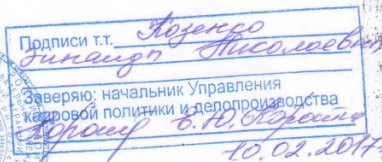 Подписи т.т. Козенко
Зинаиды Николаевны
Заверяю: начальник Управления
кадровой политики и делопроизводства
Е.Ю.
10.02.2017